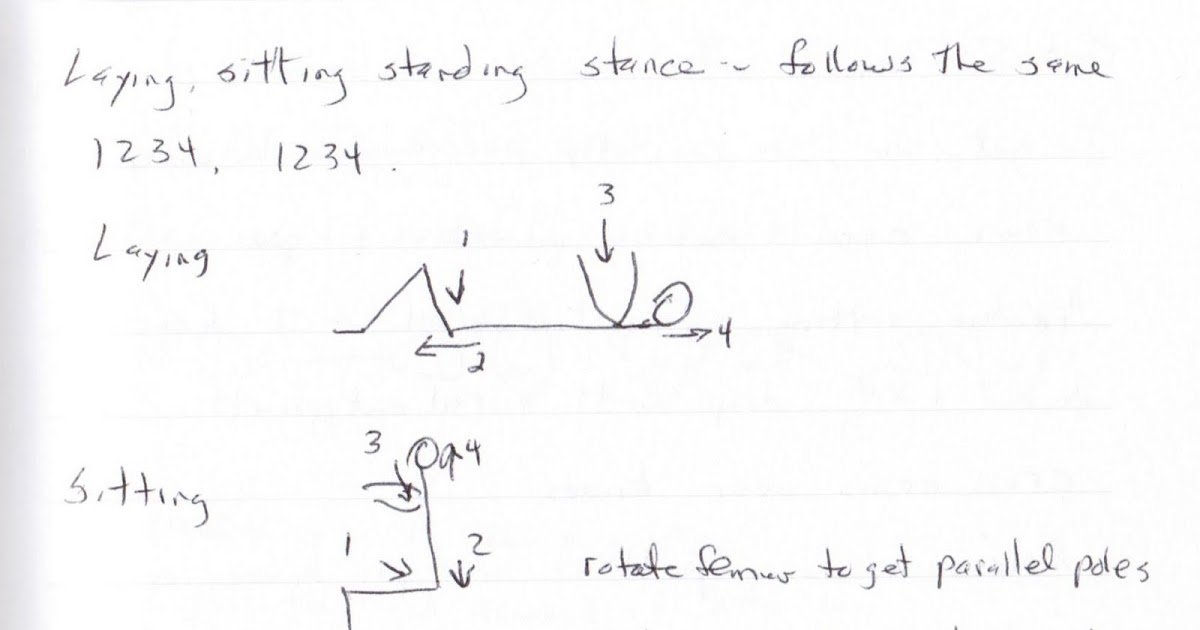 Laying, sitting standing stance ~ follows the same
1234, 1234.
3
Laying
1
4
2
3
4
Sitting
1
2
rotate femur to get parallel poles